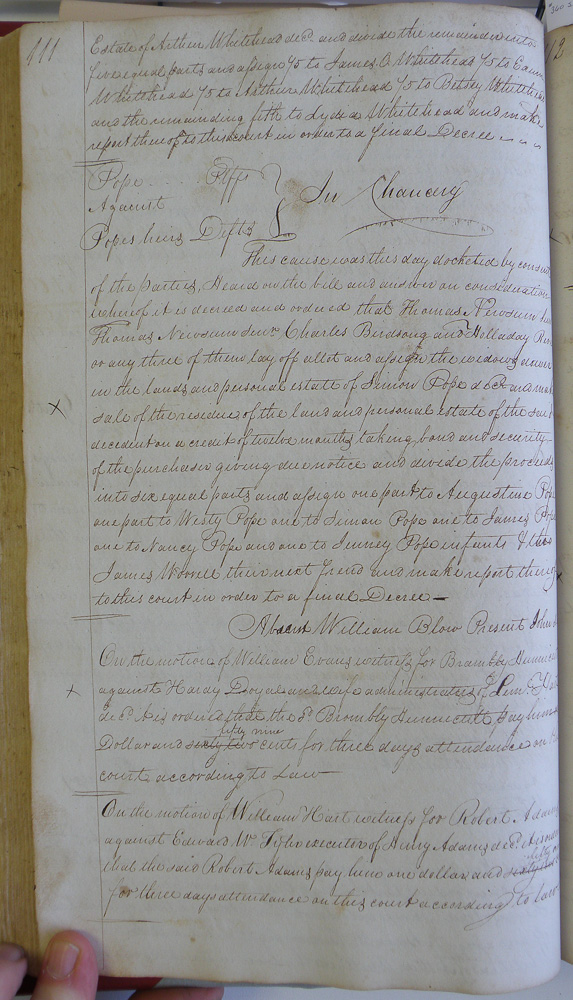 111
Estate of Arthur Whitehead decd. and divide the remainder into
five equal parts and assign 1/5 to James A Whitehead 1/5 to
Whitehead 1/5 to Arthur Whitehead 1/5 to Betsey Whitehead
and the remainding fifth to Lydea Whitehead and make
report thereof to this court in order to a final Decree
Pope Pltff
Against In Chancery
Popes heirs Defts
This cause was this day docketed by consent
of the parties, Heard on the bill and answer on consideration
whereof it is decreed and ordered that Thomas Newsum
Thomas Newsum Senr. Charles Birdsong and Holladay
or any three of them lay off allot and assign the widows dower
in the lands and personal estate of Simon Pope decd. and make
sale of the residue of the land and personal estate of the said
decedent on a credit of twelve months taking bond and security
of the purchaser giving due notice and divide the proceeds
into six equal parts and assign one part to Augustine Pope
one part to Westy Pope one to Simon Pope one to James Pope
one to Nancy Pope and one to Jenney Pope infants &
James Worrell their next freind and make report thereof
to this court in order to a final Decree
Absent William Blow Present John
On the motion of William Evans witness for Brambly
against Hardy Doyal and wife administratrix of
decd. it is ordered that the sd. Brombly pay him
fifty nine
Dollar and sixty two cents for three days attendance on
court according to Law
On the motion of William Hart witness for Robert Adams
against Edward executor of Henry Adams decd. it is
that the said Robert Adams pay him one dollar and
for three days attendance on this court according to law